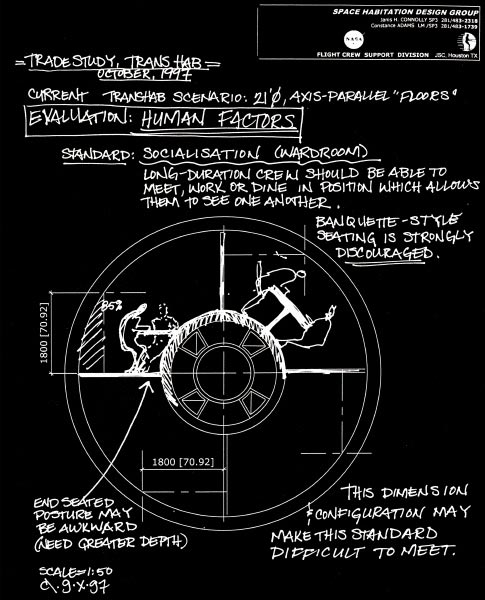 SPACE HABITATION DESIGN GROUP
Janis H. CONNOLLY SP3 281/483-2318
Constance ADAMS LM/SP3 281/483-1739
NASA
FLIGHT CREW SUPPORT DIVISION JSC, Houston TX
TRADE STUDY, TRANS HAB
OCTOBER, 1997
CURRENT TRANSHAB SCENARIO: 21'Ø, AXIS-PARALLEL "FLOORS"
EVALUATION: HUMAN FACTORS
STANDARD: SOCIALISATION (WARDROOM)
LONG-DURATION CREW SHOULD BE ABLE TO
MEET, WORK OR DINE IN POSITION WHICH ALLOWS
THEM TO SEE ONE ANOTHER.
BANQUETTE-STYLE
SEATING IS STRONGLY
DISCOURAGED.
95%
1800 [70.92]
1800 [70.92]
END SEATED
POSTURE MAY
BE AWKWARD
(NEED GREATER DEPTH)
THIS DIMENSION
& CONFIGURATION MAY
MAKE THIS STANDARD
DIFFICULT TO MEET.
SCALE = 1:50
9·X·97